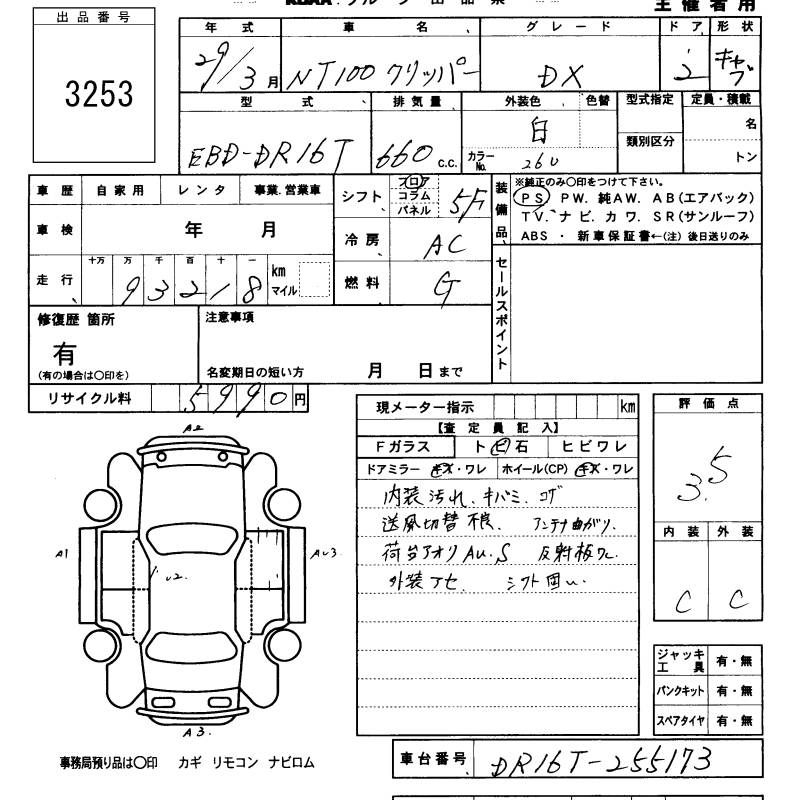 主催者用
出品番号
3253
年式 車名 グレード ドア 形状
29/3月 NT100クリッパー DX 2 キャブ
型式 排気量 外装色 色替 型式指定 定員・積載
EBD-DR16T 660 c.c. 白 名
カラーNo. 260 類別区分 トン
車歴 自家用 レンタ 事業.営業車
車検 年 月
走行 十万 万 千 百 十 一 km マイル
93218
シフト フロア コラム パネル 5F
冷房 AC
燃料 G
装備品
※純正のみ〇印をつけて下さい。
PS PW. 純AW. AB(エアバック)
TV. ナビ. カワ. SR(サンルーフ)
ABS ・ 新車保証書←(注)後日送りのみ
セールスポイント
修復歴 箇所
有
(有の場合は〇印を)
注意事項
名変期日の短い方 月 日まで
リサイクル料 5990円
現メーター指示 km
【査定員記入】
Fガラス ト ビ 石 ヒビワレ
ドアミラー キズ・ワレ ホイール(CP) キズ・ワレ
内装汚れ、キバミ、コゲ
送風切替不良、アンテナ曲がり、
荷台アオリAU.S 反射板ワレ
外装アセ、シフト固い
評価点
3.5
内装 外装
C C
ジャッキ工具 有・無
パンクキット 有・無
スペアタイヤ 有・無
A2
A1
U2
AU3
A3
事務局預り品は〇印 カギ リモコン ナビロム
車台番号 DR16T-255173